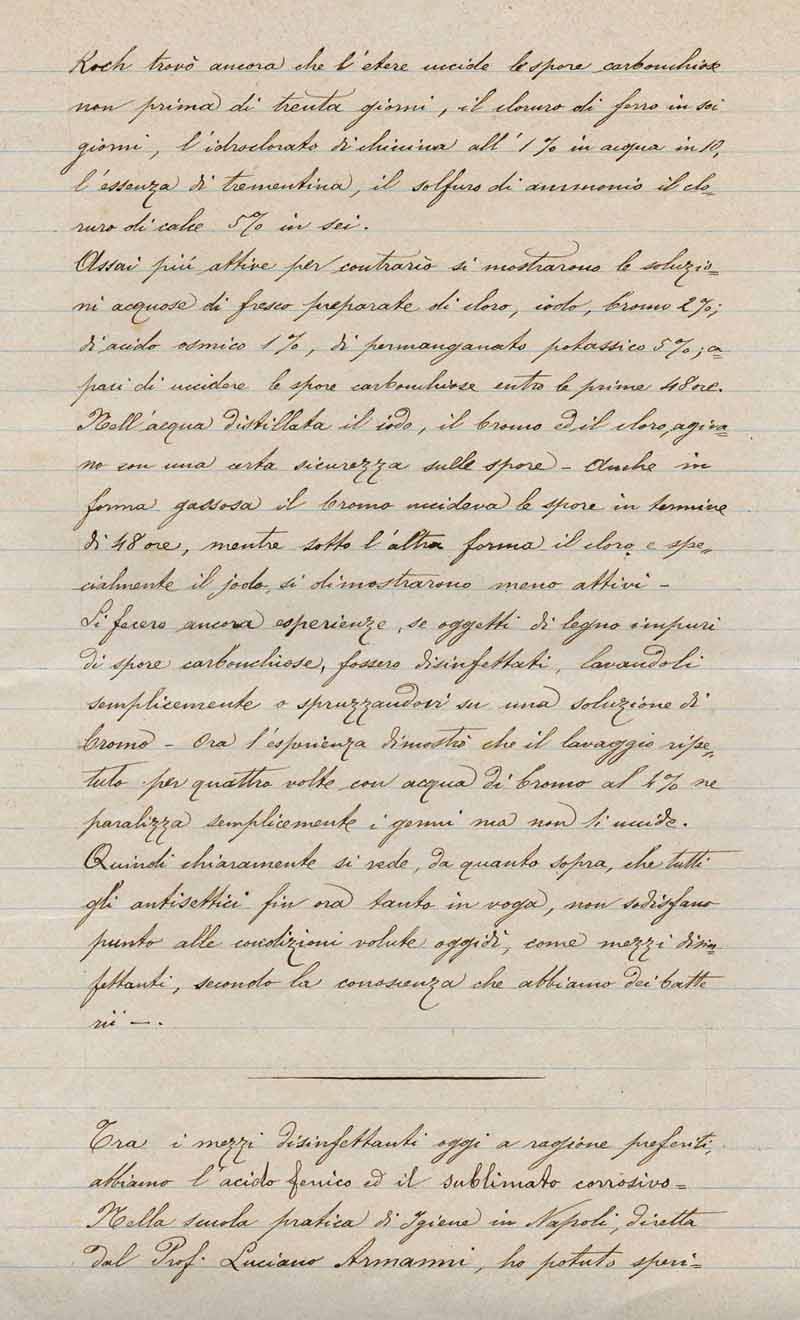 Koch trovò ancora che l'etere uccide le spore carbonchiose
non prima di trenta giorni, il cloruro di ferro in sei
giorni, l'idroclorato di chinina all'1% in acqua in 10,
l'essenza di trementina, il solfuro di ammonio il clo=
ruro di calce 5% in sei.
Assai più attive per contrario si mostrarono le soluzio=
ni acquose di fresco preparate di cloro, iodo, bromo 2%;
di acido osmico 1%, di permanganato potassico 5%; ca=
paci di uccidere le spore carbonchiose entro le prime 48 ore.
Nell'acqua distillata il iodo, il bromo ed il cloro, agiva=
no con una certa sicurezza sulle spore - Anche in
forma gassosa il bromo uccideva le spore in termine
di 48 ore, mentre sotto l'altra forma il cloro e spe=
cialmente il jodo, si dimostrarono meno attivi -
Si fecero ancora esperienze, se oggetti di legno impuri
di spore carbonchiose, fossero disinfettati, lavandoli
semplicemente o spruzzandovi su una soluzione di
bromo - Ora l'esperienza dimostrò che il lavaggio ripe=
tuto per quattro volte con acqua di bromo al 4% ne
paralizza semplicemente i germi ma non li uccide.
Quindi chiaramente si vede, da quanto sopra, che tutti
gli antisettici fin ora tanto in voga, non sodisfano
punto alle condizioni volute oggidì, come mezzi disin=
fettanti, secondo la conoscenza che abbiamo dei batte
rii -.
Tra i mezzi disinfettanti oggi a ragione preferiti,
abbiamo l'acido fenico ed il sublimato corrosivo=
Nella scuola pratica di Igiene in Napoli, diretta
dal Prof. Luciano Armanni, ho potuto speri=